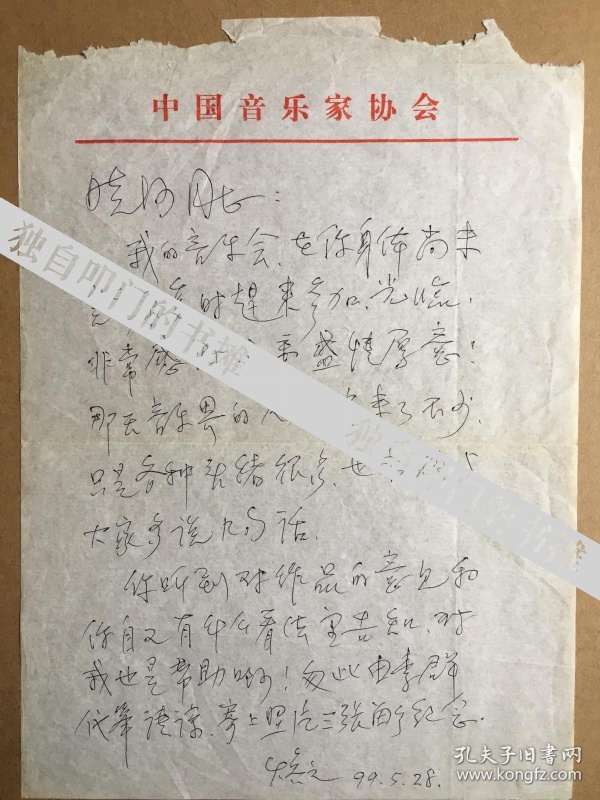 中国音乐家协会
晓河同志:
我的音乐会,在你身体尚未
时赶来参加,光临,
非常感 盛情厚意!
那天音乐界的 来了不少,
只是各种 很 也
大家多说几句话.
你听到对作品的意见和
你自又有什么看法望告知,对
我也是帮助啊!匆此由李群
代笔请谅.寄上照片三张留个纪念.
99.5.28.
独自叩门的书摊
独自叩门的书摊
孔夫子旧书网
www.kongfz.com